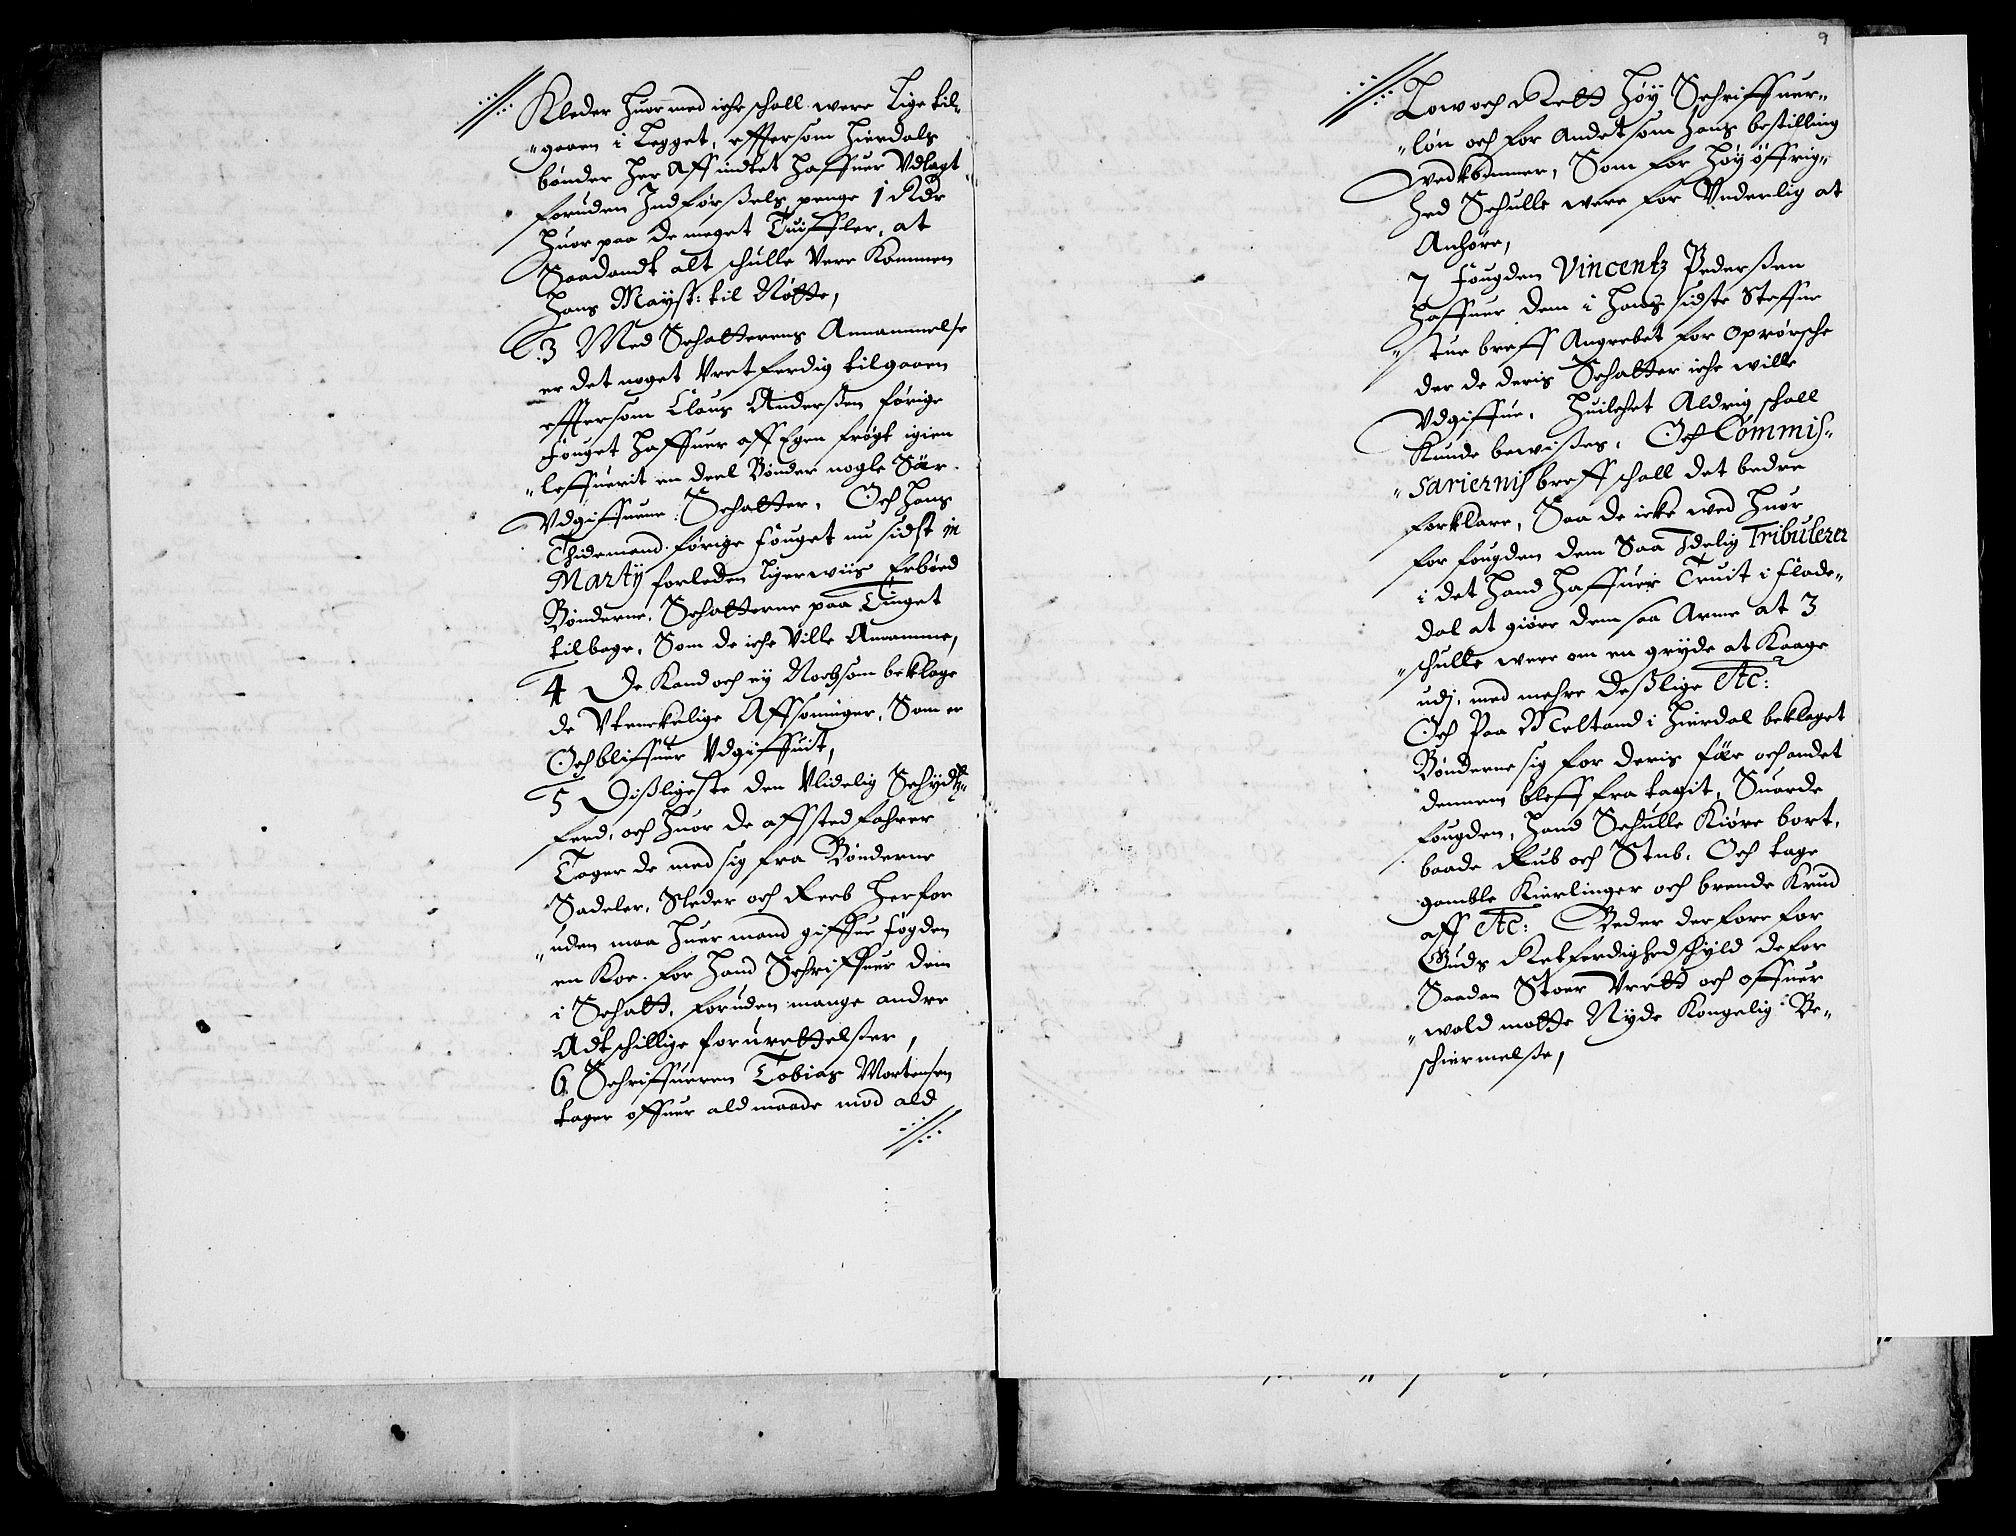 Kleder Huormed iche schall were Lige til-
"gaaen i Legget, effersom Hierdals
bønder Her Aff indtet Haffuer Vdlagt
foruden Indførßels penge 1 Rdr
Huor paa de meget Tuiffler, at
Saadandt alt schulle Vere Kommen
Hans Mayst: til Nøtte,
3 Med Schatterens Annammelse
er det noget Vretferdig tilgaaen
effersom Claus Anderßenførige
fouget Haffuer aff Egen frögt igien
"leffuerit en deel Bønder nogle Sær
Vdgiffuene Schatter, Och Hans
Thidemand førige fouget nu sidst in
Martÿ forleden ligerwiis Erböed
Bønderne, Schatterne paa Tinget
tilbage, Som de iche Ville Annamme,
4 De Kand och eÿ Nochsom beklage
de Vtenckelige Affsoninger, Som er
Och bliffuer Vdgiffuit,
5 Dißligeste den Vlidelig Schÿdtz-
ferd, och Huor de affsted fahrer
Tager de med sig fra Bønderne
Sadeler, Sleder och Reeb Herfor
"uden maa Huer mand giffue fogden
en Koe. for Hand Schriffuer dem
i Schatt, foruden mange andre
Adtschillige foruretttelßer,
6 Schriffueren Tobias Mortensen
tager offuer ald maade mod ald
9
Low och Rett Høÿ Schriffuer-
"løn och for Andet som Hans bestilling
vedkommer, Som for Høÿ öffrig-
hed Schulle were for Vnderlig at
Anhøre,
7 fougden Vincentz Pederßen
Haffuer dem i Hans sidste Steffne
tue breff Angrebet for oprørsche
der de deris Schatter iche wille
Vdgiffue, Huilchet Aldrig schall
Kunde bewißes, Och Commis-
"sariernis breff schall det bedre
forklare, Saa de icke wed Huor
for fougden dem Saa Idelig Tribulerer
i det Hand Haffuer Truit i flade-
dal at giøre dem saa Arme at 3
"schulle were om en grÿde at Kaage
udj, med mehre deßlige Etc:
Och Paa Meltand i Hierdal beklaget
Bønderne sig for deris fäe och andet
dennem bleff fra tagit, Suarde
fougden, Hand Schulle Kiøre bort,
baade Rub och Stub, Och tage
gamble Kierlinger och brende Krud
aff Etc: Beder derfore for
Guds Retferdighed schÿld de for
Saadan Stoer Vrett och offuer
"wold motte Nÿde Kongelig Be-
schiermelße,